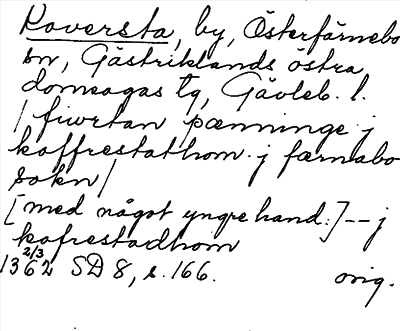 Koversta, by, Österfärnebo
sn, Gästriklands östra
domsagas tg, Gävleb. l.
/ fiwrtan pænninge j
koffrestathom j færnabo
sokn /
[med något yngre hand:] -- j
kofrestadhom
1362 2/3 SD 8, s. 166. orig.